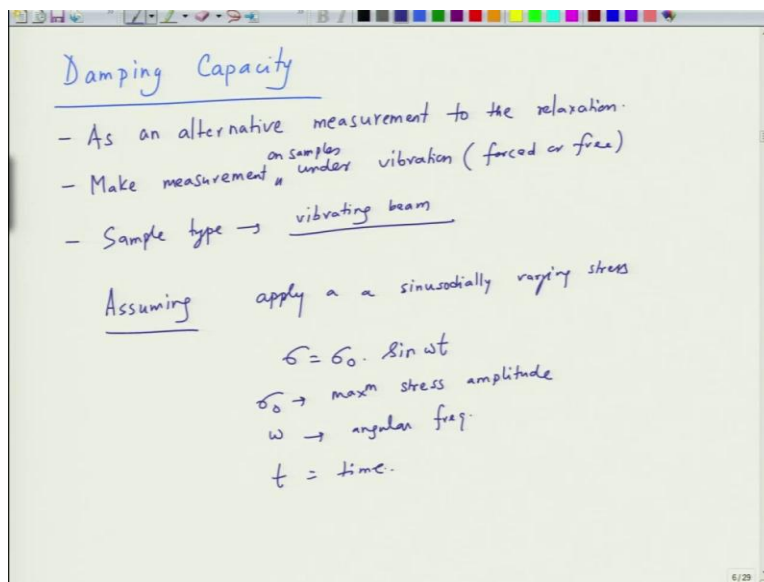 Damping Capacity
- As an alternative measurement to the relaxation.
- Make measurement on samples under vibration (forced or free)
- Sample type → vibrating beam
Assuming apply a a sinusodially varying stress
σ = σ₀. Sin ωt
σ₀ → maxᵐ stress amplitude
ω → angular freq.
t = time..
6/29